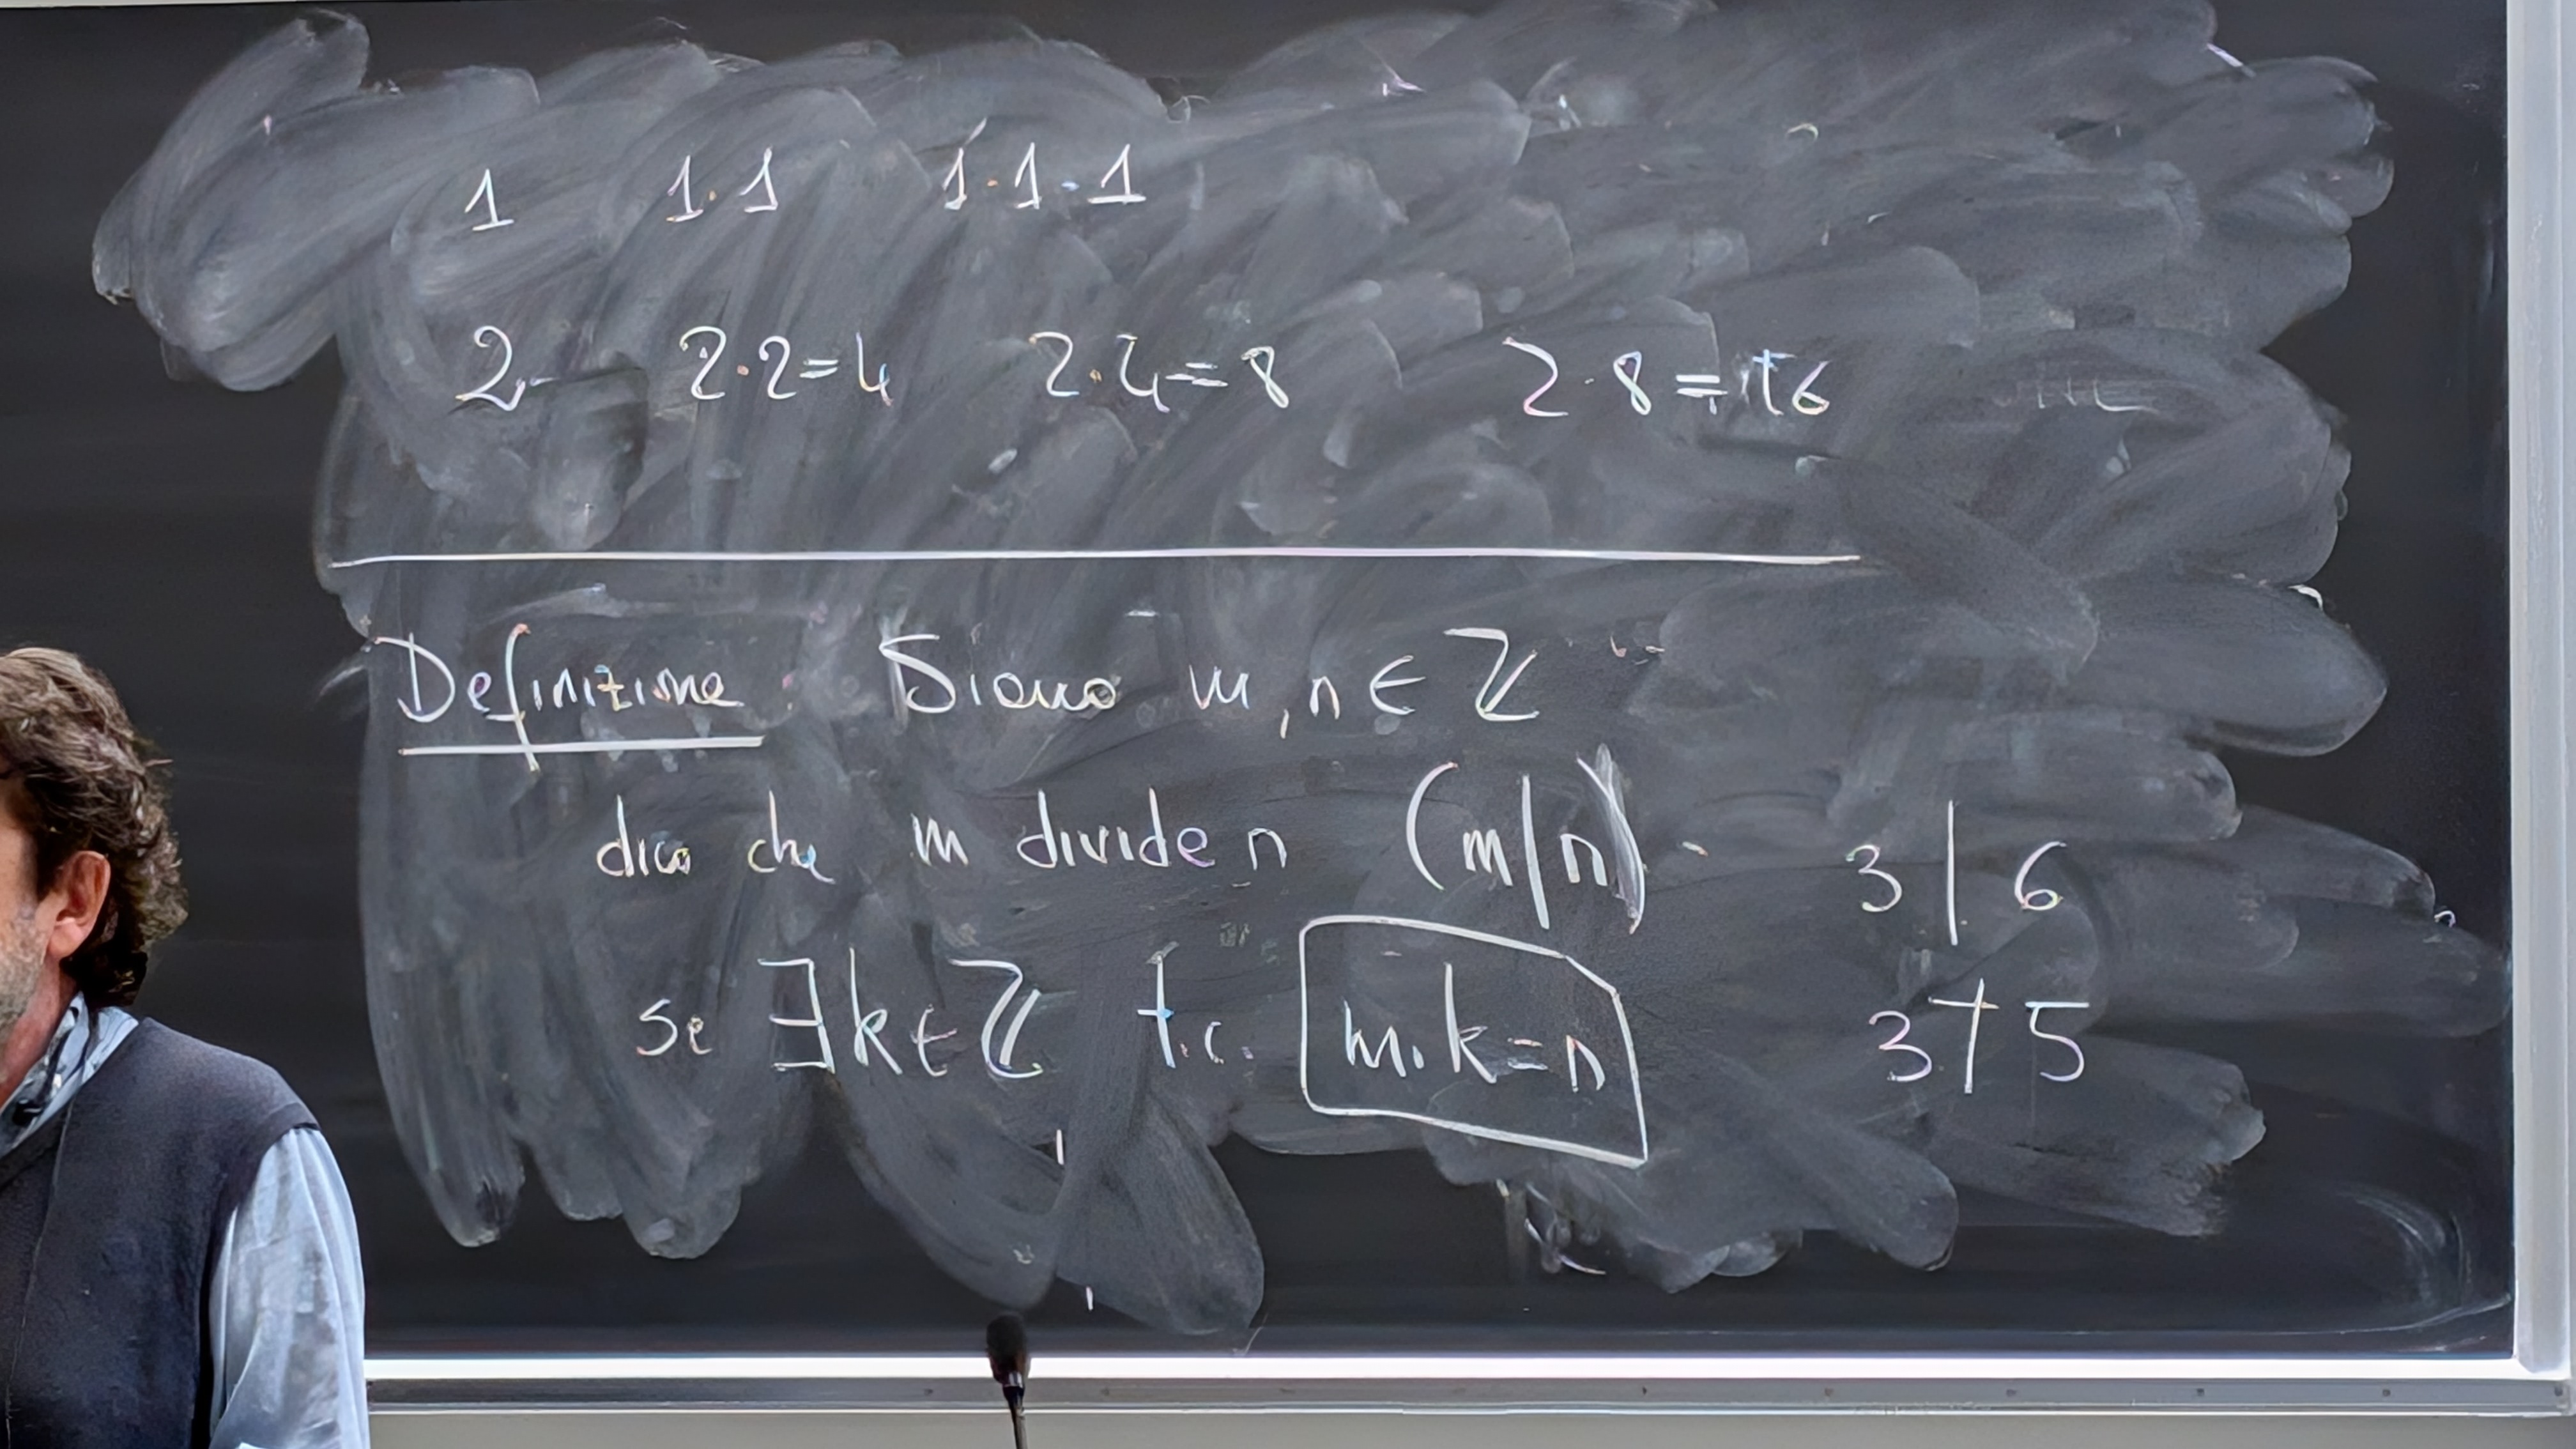 1 1·1 1·1·1
2 2·2=4 2·4=8 2·8=16
Definizione: Siano m,n ∈ ℤ
dico che m divide n (m|n)
3 | 6
se ∃k∈ℤ t.c. m·k=n
3 ∤ 5